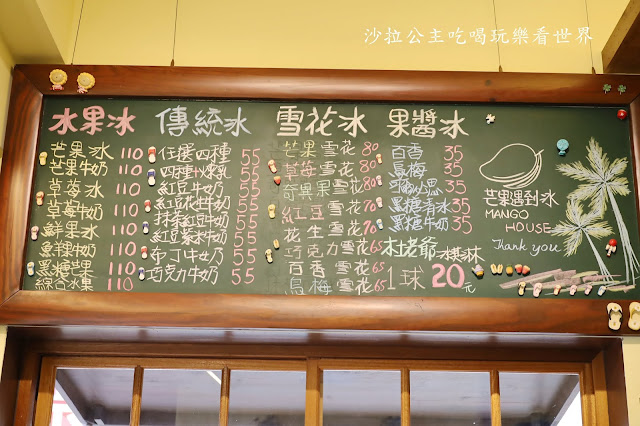 沙拉公主吃喝玩樂看世界
水果冰
芒果冰 110
芒果牛奶 110
草莓冰 110
草莓牛奶 110
鮮果冰 110
鮮粿牛奶 110
黑糖芒果 110
綜合水果 110
傳統冰
任選四種 55
四種煉乳 55
紅豆牛奶 55
紅豆花牛奶 55
抹茶紅豆牛奶 55
紅豆薏米牛奶 55
布丁牛奶 55
巧克力牛奶 55
雪花冰
芒果雪花 80
草莓雪花 80
奇異果雪花 80
紅豆雪花 70
花生雪花 70
巧克力雪花 65
百香雪花 65
烏梅雪花 65
果醬冰
百香 35
烏梅 35
35
黑糖清冰 35
黑糖牛奶 35
杜老爺冰淇淋
1球20元
芒果遇到冰
MANGO
HOUSE
Thank you